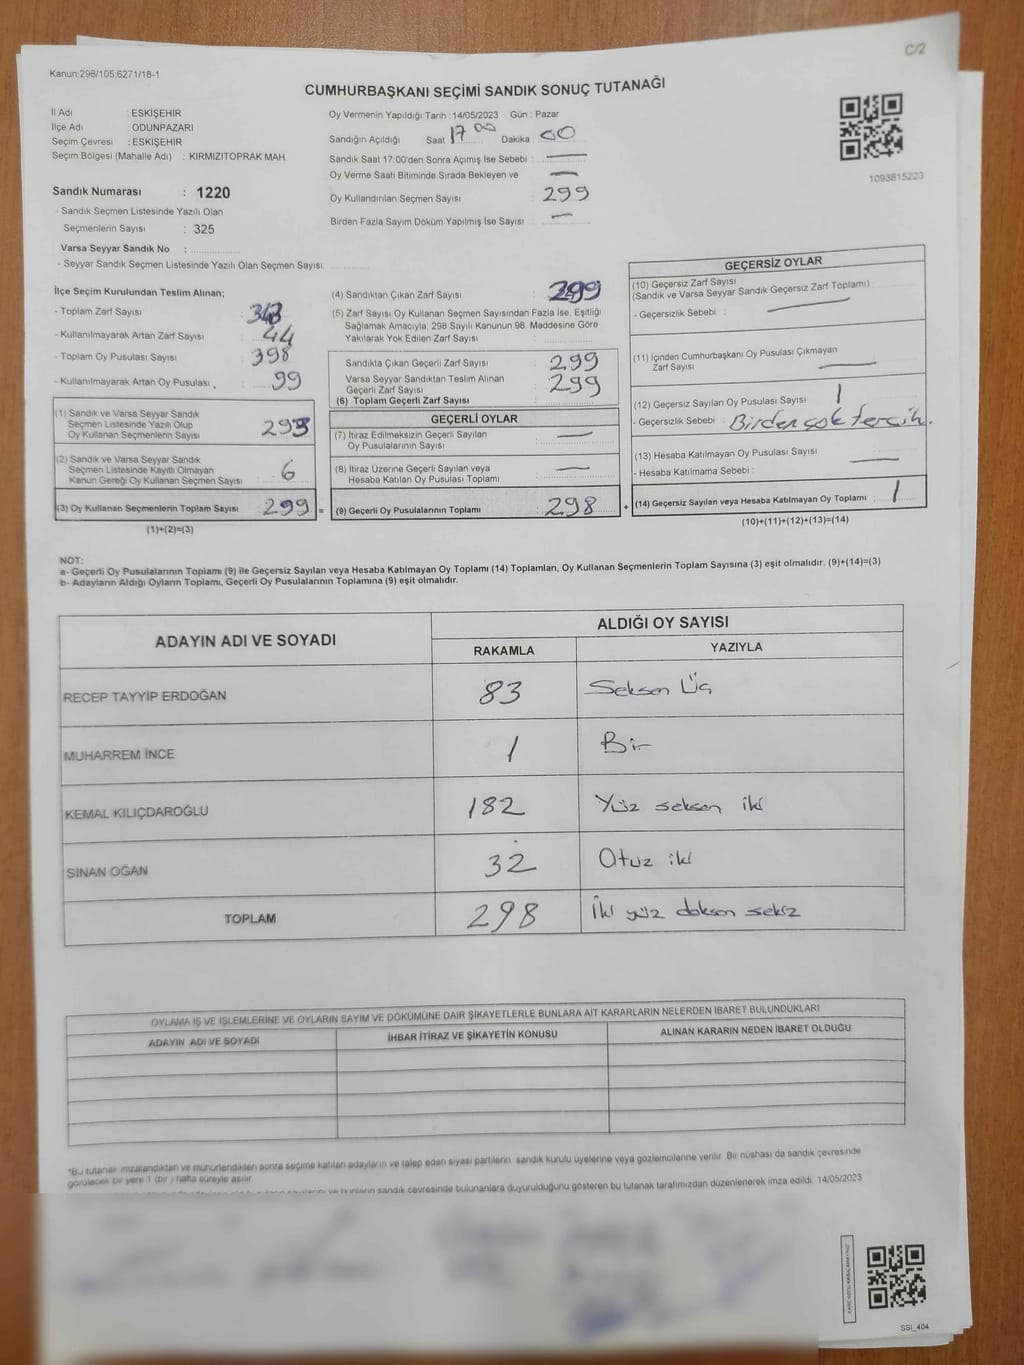 C/2
Kanun:298/105;6271/18-1
CUMHURBAŞKANI SEÇİMİ SANDIK SONUÇ TUTANAĞI
İl Adı : ESKİŞEHİR
İlçe Adı : ODUNPAZARI
Seçim Çevresi : ESKİŞEHİR
Seçim Bölgesi (Mahalle Adı) : KIRMIZITOPRAK MAH.
Sandık Numarası : 1220
- Sandık Seçmen Listesinde Yazılı Olan
Seçmenlerin Sayısı : 325
Varsa Seyyar Sandık No :
- Seyyar Sandık Seçmen Listesinde Yazılı Olan Seçmen Sayısı:
Oy Vermenin Yapıldığı Tarih :14/05/2023 Gün : Pazar
Sandığın Açıldığı Saat 17 00 Dakika : 00
Sandık Saat 17:00'den Sonra Açımış İse Sebebi : —
Oy Verme Saati Bitiminde Sırada Bekleyen ve —
Oy Kullandırılan Seçmen Sayısı : 299
Birden Fazla Sayım Döküm Yapılmış İse Sayısı : —
1093815223
İlçe Seçim Kurulundan Teslim Alınan;
- Toplam Zarf Sayısı : 343
- Kullanılmayarak Artan Zarf Sayısı : 44
- Toplam Oy Pusulası Sayısı : 398
- Kullanılmayarak Artan Oy Pusulası : 99
(1) Sandık ve Varsa Seyyar Sandık
Seçmen Listesinde Yazılı Olup
Oy Kullanan Seçmenlerin Sayısı : 293
(2) Sandık ve Varsa Seyyar Sandık
Seçmen Listesinde Kayıtlı Olmayan
Kanun Gereği Oy Kullanan Seçmen Sayısı : 6
(3) Oy Kullanan Seçmenlerin Toplam Sayısı : 299 =
(1)+(2)=(3)
(4) Sandıktan Çıkan Zarf Sayısı : 299
(5) Zarf Sayısı Oy Kullanan Seçmen Sayısından Fazla İse, Eşitliği
Sağlamak Amacıyla; 298 Sayılı Kanunun 98. Maddesine Göre
Yakılarak Yok Edilen Zarf Sayısı :
Sandıkta Çıkan Geçerli Zarf Sayısı : 299
Varsa Seyyar Sandıktan Teslim Alınan
Geçerli Zarf Sayısı : 299
(6) Toplam Geçerli Zarf Sayısı :
GEÇERLİ OYLAR
(7) İtiraz Edilmeksizin Geçerli Sayılan
Oy Pusulalarının Sayısı : —
(8) İtiraz Üzerine Geçerli Sayılan veya
Hesaba Katılan Oy Pusulası Toplamı : —
(9) Geçerli Oy Pusulalarının Toplamı : 298 +
GEÇERSİZ OYLAR
(10) Geçersiz Zarf Sayısı
(Sandık ve Varsa Seyyar Sandık Geçersiz Zarf Toplamı)
- Geçersizlik Sebebi : —
(11) İçinden Cumhurbaşkanı Oy Pusulası Çıkmayan
Zarf Sayısı : —
(12) Geçersiz Sayılan Oy Pusulası Sayısı : 1
- Geçersizlik Sebebi : Birden çok tercih.
(13) Hesaba Katılmayan Oy Pusulası Sayısı : —
- Hesaba Katılmama Sebebi :
(14) Geçersiz Sayılan veya Hesaba Katılmayan Oy Toplamı : 1
(10)+(11)+(12)+(13)=(14)
NOT:
a- Geçerli Oy Pusulalarının Toplamı (9) ile Geçersiz Sayılan veya Hesaba Katılmayan Oy Toplamı (14) Toplamları, Oy Kullanan Seçmenlerin Toplam Sayısına (3) eşit olmalıdır. (9)+(14)=(3)
b- Adayların Aldığı Oyların Toplamı, Geçerli Oy Pusulalarının Toplamına (9) eşit olmalıdır.
ADAYIN ADI VE SOYADI
ALDIĞI OY SAYISI
RAKAMLA YAZIYLA
RECEP TAYYİP ERDOĞAN 83 Seksen Üç
MUHARREM İNCE 1 Bir
KEMAL KILIÇDAROĞLU 182 Yüz seksen iki
SİNAN OĞAN 32 Otuz iki
TOPLAM 298 İki yüz doksan sekiz
OYLAMA İŞ VE İŞLEMLERİNE VE OYLARIN SAYIM VE DÖKÜMÜNE DAİR ŞİKAYETLERLE BUNLARA AİT KARARLARIN NELERDEN İBARET BULUNDUKLARI
ADAYIN ADI VE SOYADI İHBAR İTİRAZ VE ŞİKAYETİN KONUSU ALINAN KARARIN NEDEN İBARET OLDUĞU
*Bu tutanak imzalandıktan ve mühürlendikten sonra seçime katılan adayların ve talep eden siyasi partilerin sandık kurulu üyelerine veya gözlemcilerine verilir. Bir nüshası da sandık çevresinde
görülecek bir yere 1 (bir ) hafta süreyle asılır.
bunların sandık çevresinde bulunanlara duyurulduğunu gösteren bu tutanak tarafımızdan düzenlenerek imza edildi. 14/05/2023
SSI_404